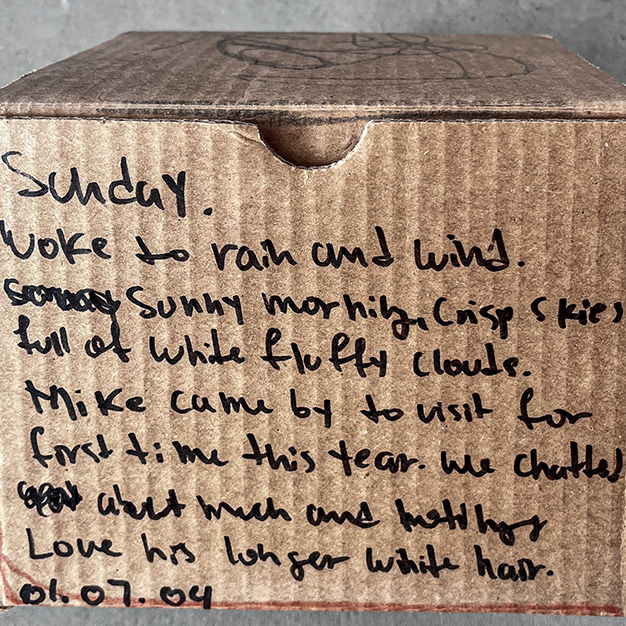 Sunday.
Woke to rain and wind.
Sunny morning, Crisp skies
full of white fluffy clouds.
Mike came by to visit for
first time this year. We chatted
about much and nothing
Love his longer white hair.
01.07.04